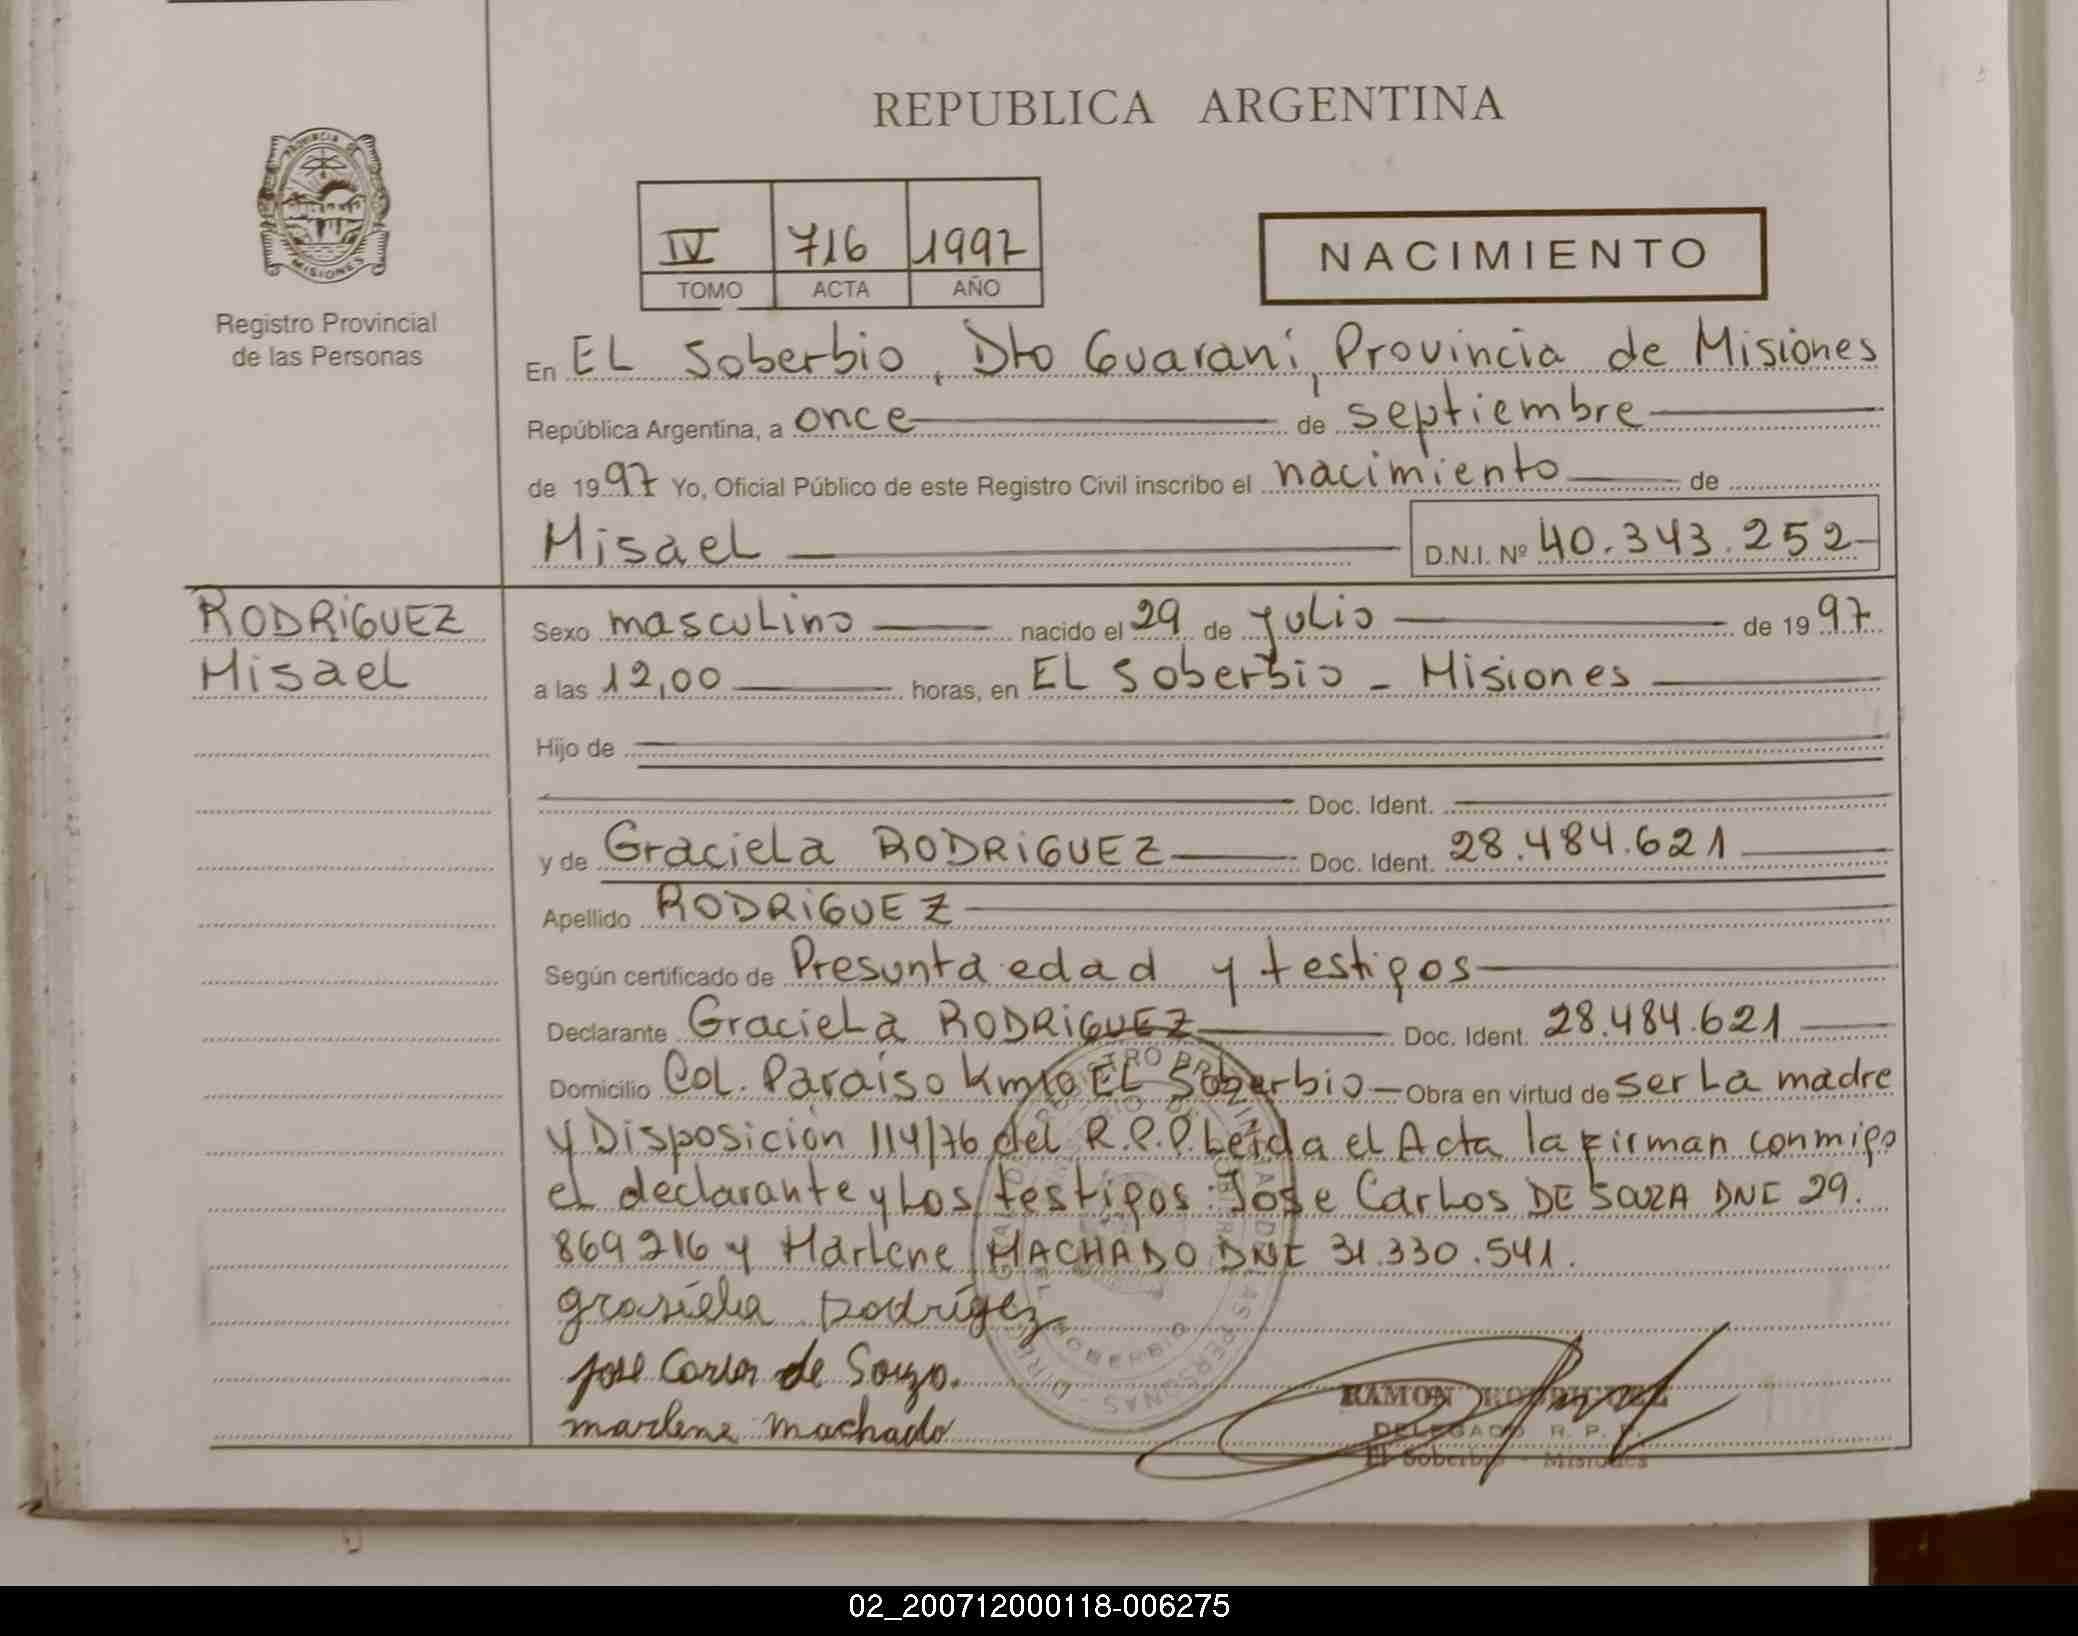 REPUBLICA ARGENTINA
PROVINCIA DE
MISIONES
Registro Provincial
de las Personas
IV 716 1997
TOMO ACTA AÑO
NACIMIENTO
En EL Soberbio, Dto Guaraní, Provincia de Misiones
República Argentina, a once de septiembre
de 1997 Yo, Oficial Público de este Registro Civil inscribo el nacimiento de
Misael
D.N.I. Nº 40.343.252
RODRiGUEZ
Misael
Sexo masculino nacido el 29 de julio de 1997
a las 12,00 horas, en EL Soberbio - Misiones
Hijo de
Doc. Ident.
y de Graciela RODRiGUEZ Doc. Ident. 28.484.621
Apellido RODRiGUEZ
Según certificado de Presunta edad y testigos
Declarante Graciela RODRiGUEZ Doc. Ident. 28.484.621
Domicilio Col. Paraíso km10 EL Soberbio - Obra en virtud de ser La madre
y Disposición 114/76 del R.P.P. Leída el Acta la firman conmigo
el declarante y Los testigos: Jose Carlos DE SOUZA DNI 29.
869216 y Marlene MACHADO DNI 31.330.541.
grasiela Rodrígez
jose Carlos de Souza.
marlene machado
RAMON RODRIGUEZ
DELEGADO R. P. P.
El Soberbio - Misiones
02_200712000118-006275